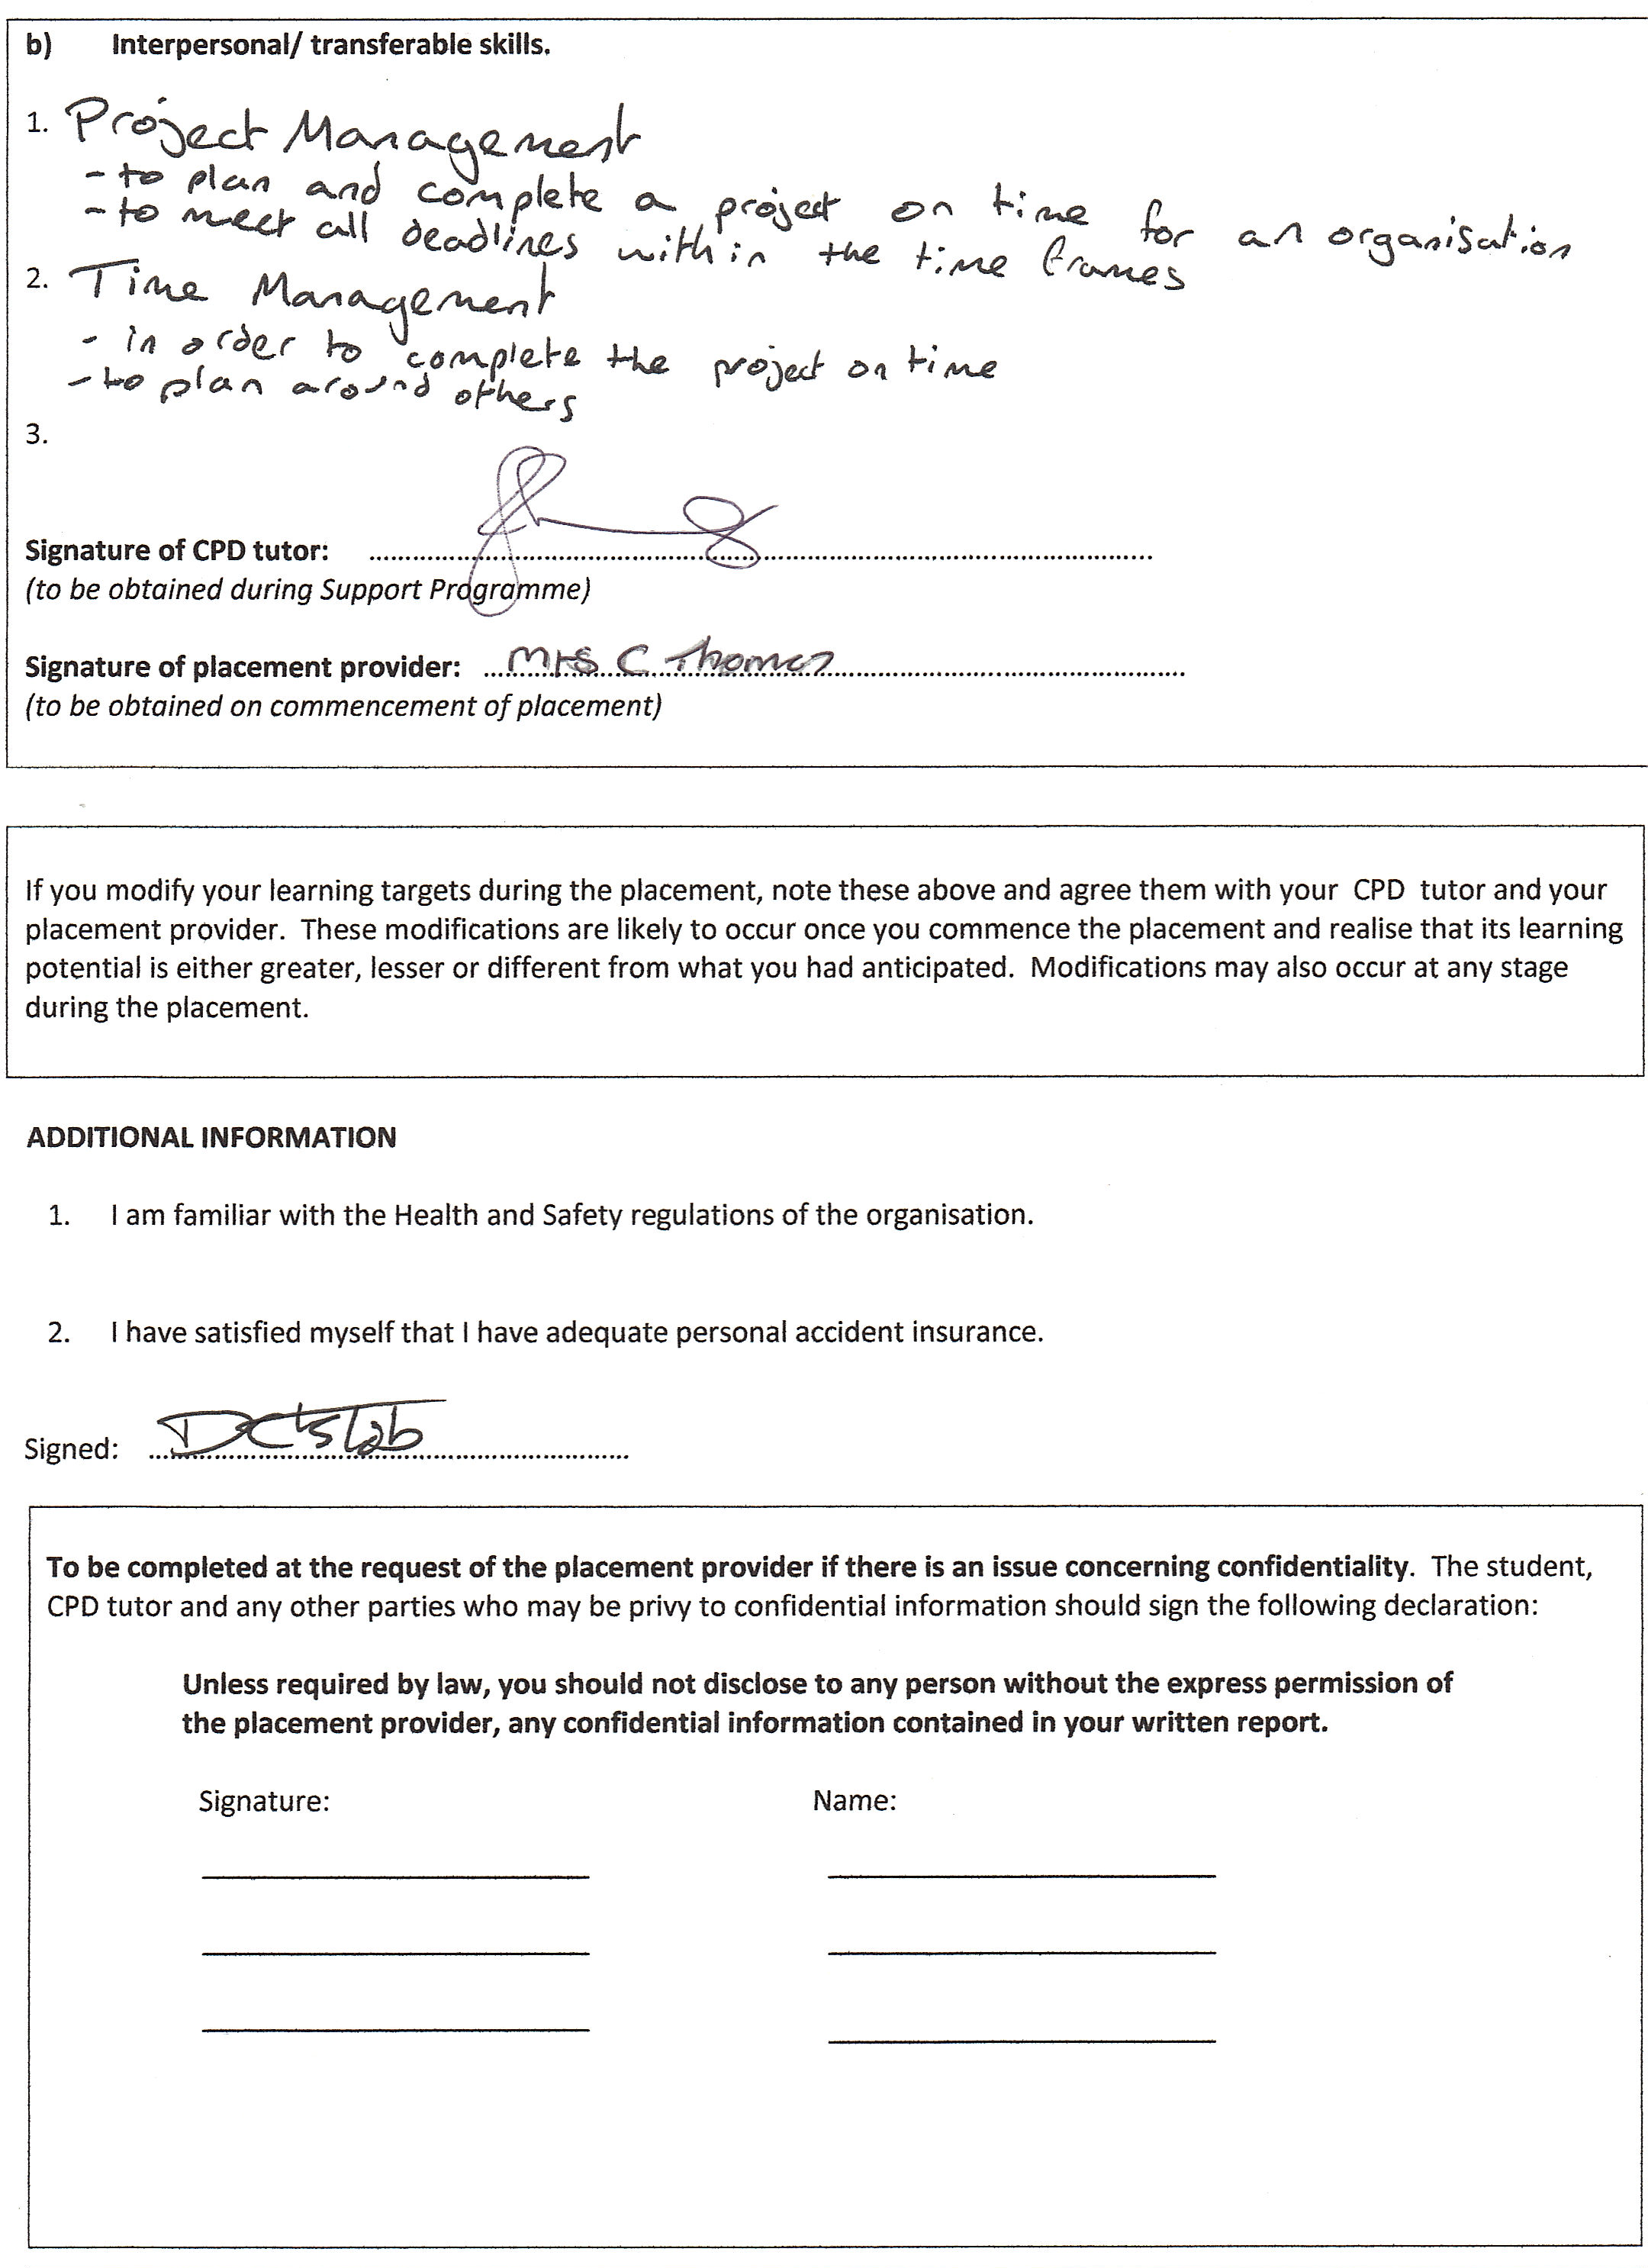 b) Interpersonal/ transferable skills.
1. Project Management
- to plan and complete a project on time for an organisation
- to meet all deadlines within the time frames
2. Time Management
- in order to complete the project on time
- to plan around others
3.
Signature of CPD tutor: ........................................
(to be obtained during Support Programme)
Signature of placement provider: Mrs C Thomas
(to be obtained on commencement of placement)
If you modify your learning targets during the placement, note these above and agree them with your CPD tutor and your
placement provider. These modifications are likely to occur once you commence the placement and realise that its learning
potential is either greater, lesser or different from what you had anticipated. Modifications may also occur at any stage
during the placement.
ADDITIONAL INFORMATION
1. I am familiar with the Health and Safety regulations of the organisation.
2. I have satisfied myself that I have adequate personal accident insurance.
Signed: ........................................
To be completed at the request of the placement provider if there is an issue concerning confidentiality. The student,
CPD tutor and any other parties who may be privy to confidential information should sign the following declaration:
Unless required by law, you should not disclose to any person without the express permission of
the placement provider, any confidential information contained in your written report.
Signature: Name: